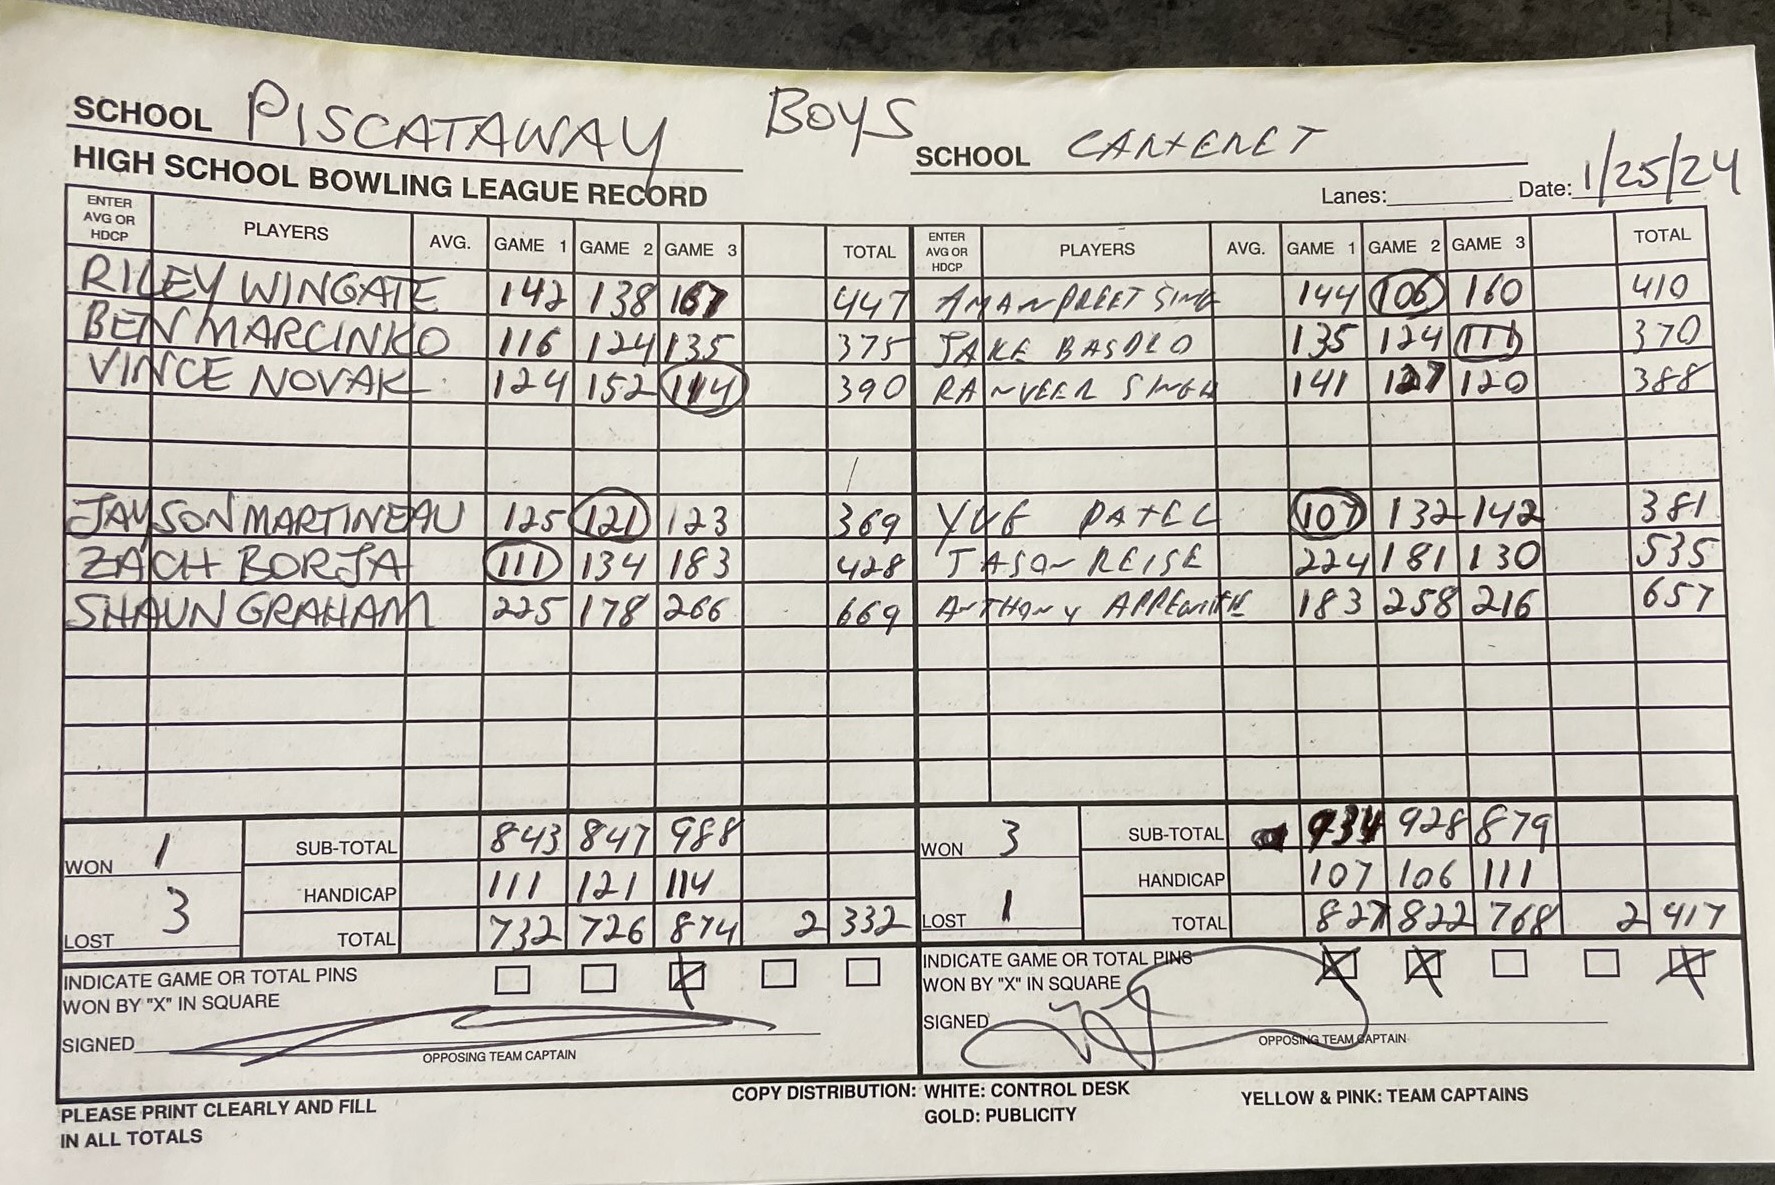 SCHOOL PISCATAWAY BOYS SCHOOL CARTERET
HIGH SCHOOL BOWLING LEAGUE RECORD Lanes: Date: 1/25/24
ENTER AVG OR HDCP PLAYERS AVG. GAME 1 GAME 2 GAME 3 TOTAL ENTER AVG OR HDCP PLAYERS AVG. GAME 1 GAME 2 GAME 3 TOTAL
RILEY WINGATE 142 138 167 447 AMANPREET SING 144 106 160 410
BEN MARCINKO 116 124 135 375 JAKE 135 124 111 370
VINCE NOVAK 124 152 114 390 RANVEER SINGH 141 127 120 388
JAYSON MARTINEAU 125 121 123 369 YUG PATEL 107 132 142 381
ZACH BORJA 111 134 183 428 JASON REISE 224 181 130 535
SHAUN GRAHAM 225 178 266 669 ANTHONY 183 258 216 657
WON 1 SUB-TOTAL 843 847 988 WON 3 SUB-TOTAL 934 928 879
HANDICAP 111 121 114 HANDICAP 107 106 111
LOST 3 TOTAL 732 726 874 2 332 LOST 1 TOTAL 827 822 768 2 417
INDICATE GAME OR TOTAL PINS X INDICATE GAME OR TOTAL PINS X X X
WON BY "X" IN SQUARE WON BY "X" IN SQUARE
SIGNED SIGNED
OPPOSING TEAM CAPTAIN OPPOSING TEAM CAPTAIN
PLEASE PRINT CLEARLY AND FILL COPY DISTRIBUTION: WHITE: CONTROL DESK YELLOW & PINK: TEAM CAPTAINS
IN ALL TOTALS GOLD: PUBLICITY